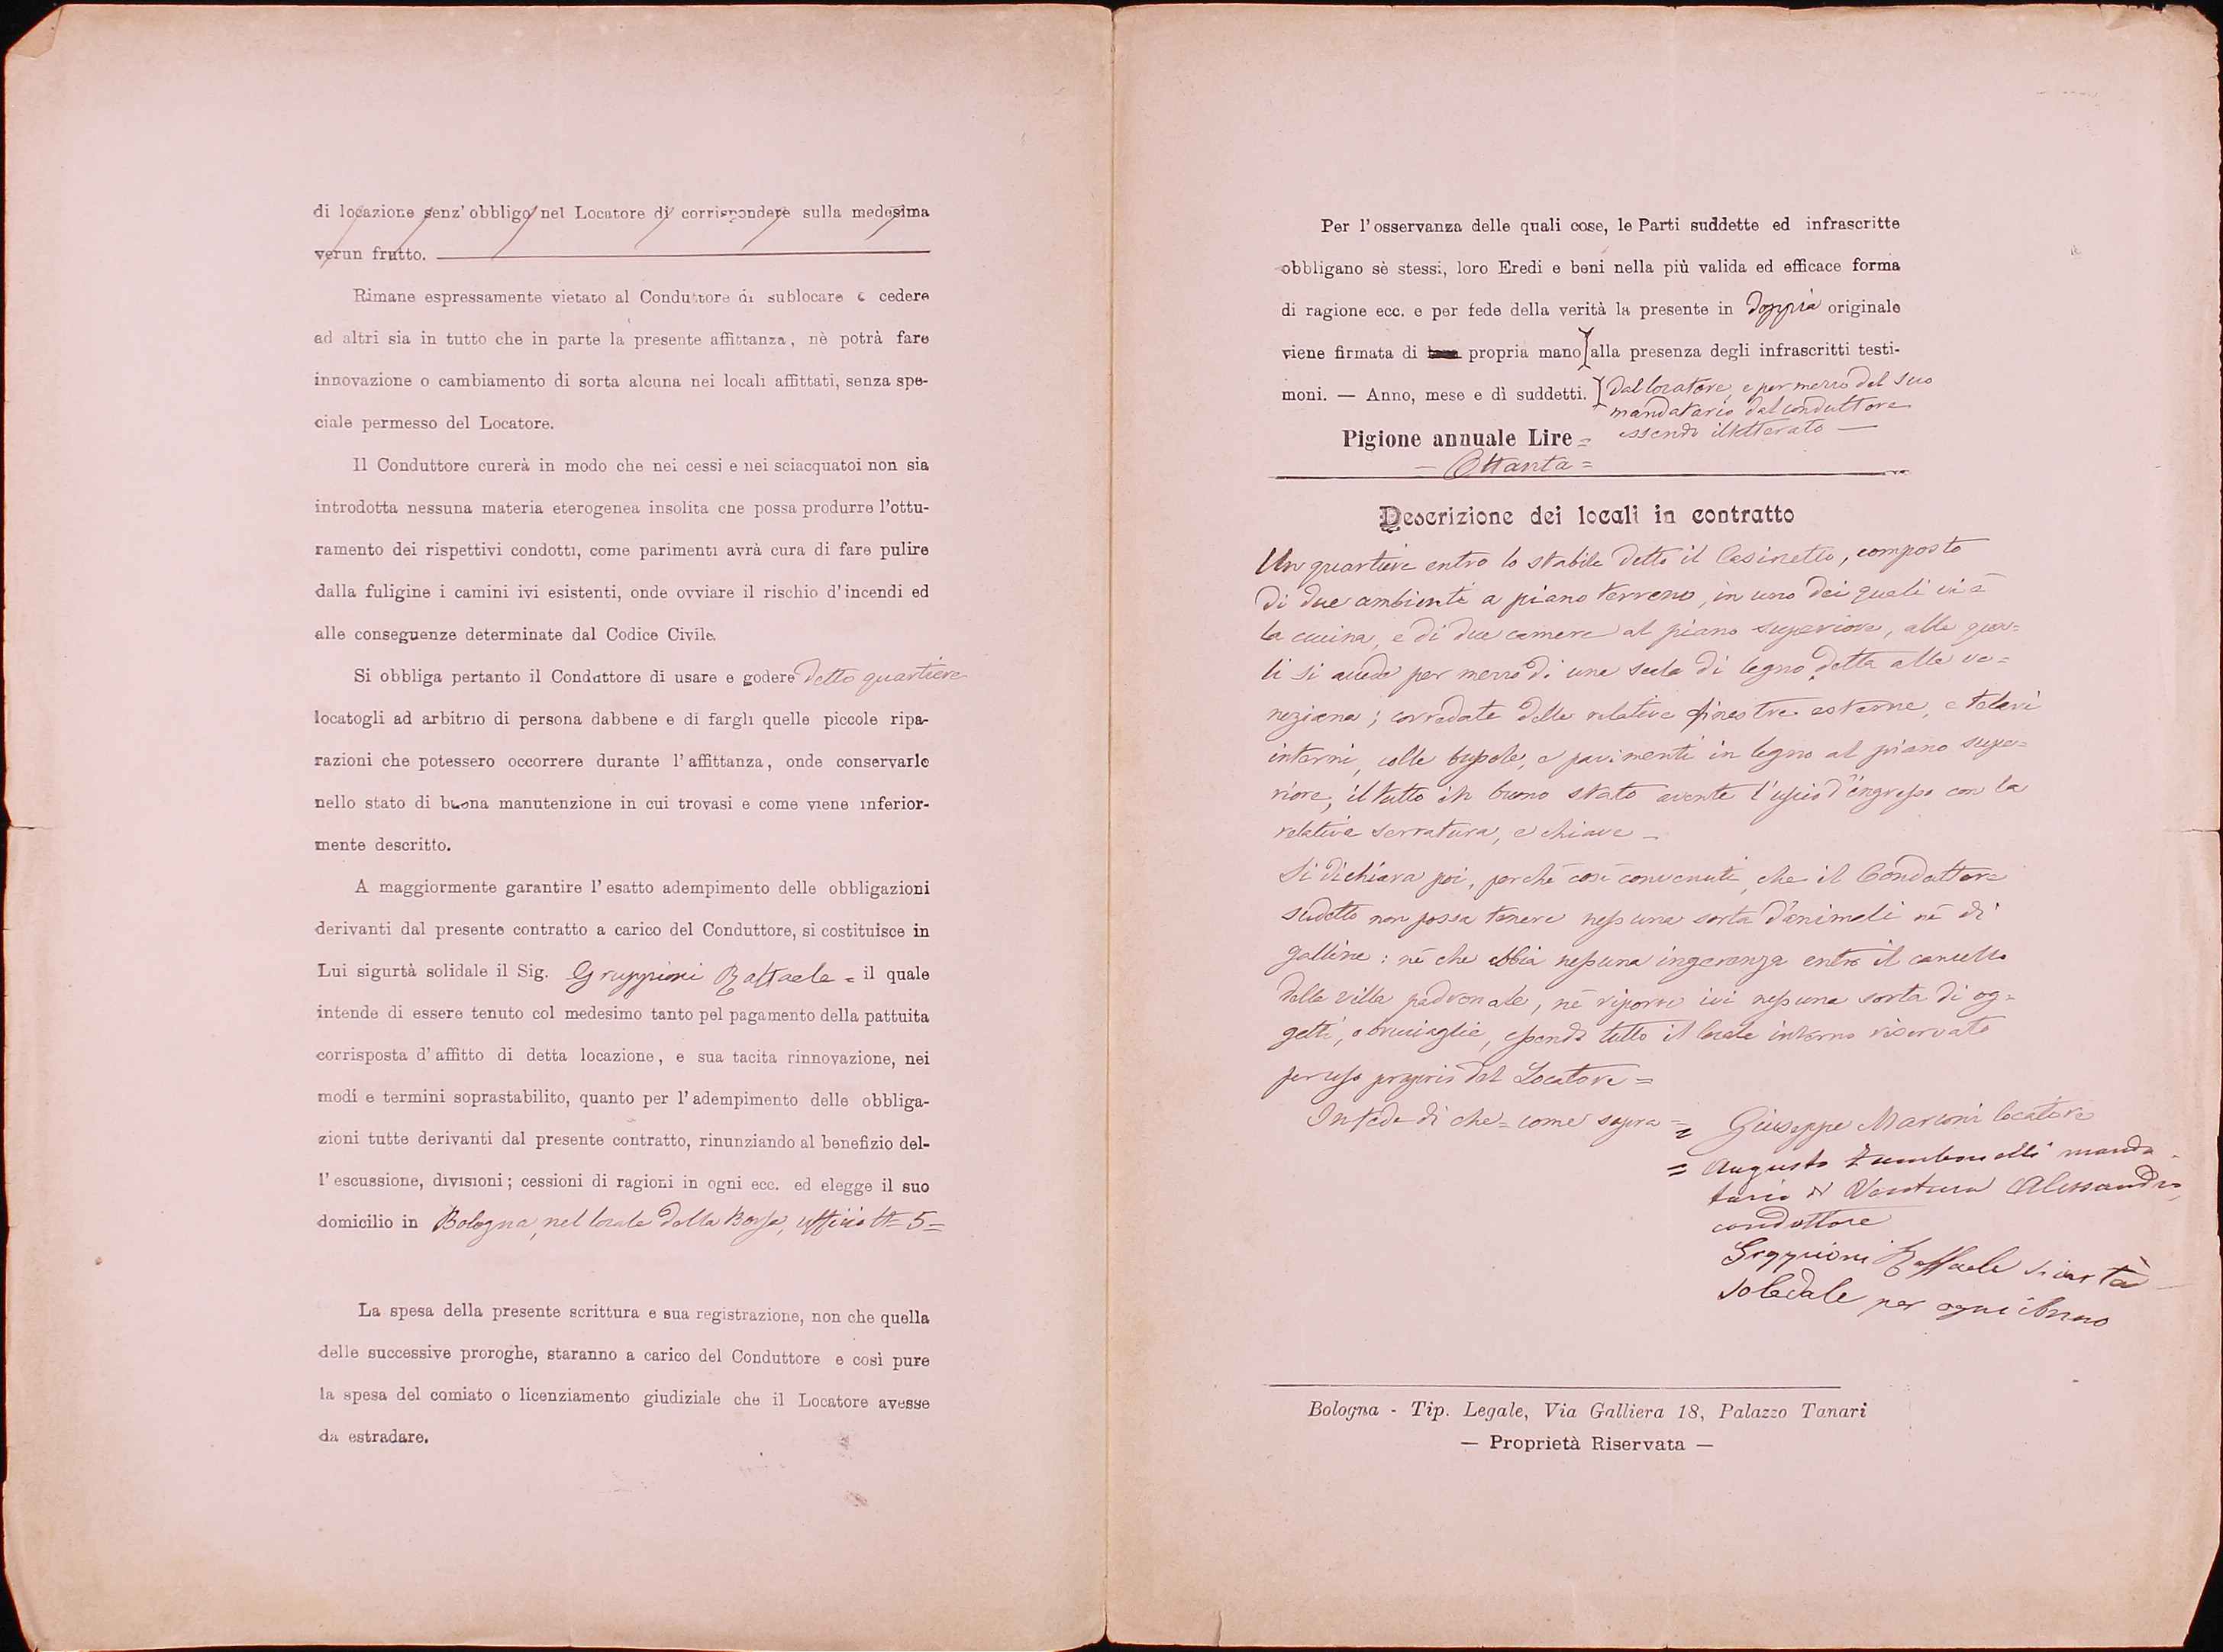 di locazione senz' obbligo nel Locatore di corrispondere sulla medesima
verun frutto.
Rimane espressamente vietato al Conduttore di sublocare e cedere
ad altri sia in tutto che in parte la presente affittanza, nè potrà fare
innovazione o cambiamento di sorta alcuna nei locali affittati, senza spe-
ciale permesso del Locatore.
Il Conduttore curerà in modo che nei cessi e nei sciacquatoi non sia
introdotta nessuna materia eterogenea insolita che possa produrre l'ottu-
ramento dei rispettivi condotti, come parimenti avrà cura di fare pulire
dalla fuligine i camini ivi esistenti, onde ovviare il rischio d'incendi ed
alle conseguenze determinate dal Codice Civile.
Si obbliga pertanto il Conduttore di usare e godere detto quartiere
locatogli ad arbitrio di persona dabbene e di fargli quelle piccole ripa-
razioni che potessero occorrere durante l'affittanza, onde conservarlo
nello stato di buona manutenzione in cui trovasi e come viene inferior-
mente descritto.
A maggiormente garantire l'esatto adempimento delle obbligazioni
derivanti dal presente contratto a carico del Conduttore, si costituisce in
Lui sigurtà solidale il Sig. Gruppioni Raffaele = il quale
intende di essere tenuto col medesimo tanto pel pagamento della pattuita
corrisposta d'affitto di detta locazione, e sua tacita rinnovazione, nei
modi e termini soprastabilito, quanto per l'adempimento delle obbliga-
zioni tutte derivanti dal presente contratto, rinunziando al benefizio del-
l'escussione, divisioni; cessioni di ragioni in ogni ecc. ed elegge il suo
domicilio in Bologna, nel locale della Borsa, ufficio N= 5=
La spesa della presente scrittura e sua registrazione, non che quella
delle successive proroghe, staranno a carico del Conduttore e così pure
la spesa del comiato o licenziamento giudiziale che il Locatore avesse
da estradare.
Per l'osservanza delle quali cose, le Parti suddette ed infrascritte
obbligano sè stessi, loro Eredi e beni nella più valida ed efficace forma
di ragione ecc. e per fede della verità la presente in doppia originale
viene firmata di propria mano alla presenza degli infrascritti testi-
moni. — Anno, mese e dì suddetti. dal locatore, e per mezzo del suo
mandatario dal conduttore
Pigione annuale Lire = essendo illetterato —
— Ottanta =
Descrizione dei locali in contratto
Un quartiere entro lo stabile detto il Casinetto, composto
di due ambienti a piano terreno, in uno dei quali vi è
la cucina, e di due camere al piano superiore, alle qua=
li si accede per mezzo di una scala di legno detta alla ve=
neziana; corredate delle relative finestre esterne, e telari
interni, colle bussole, e pavimenti in legno al piano supe=
riore, il tutto in buono stato avente l'uscio d'ingresso con la
relativa serratura, e chiave —
Si dichiara poi, perchè così convenuti, che il Conduttore
sudetto non possa tenere nessuna sorta d'animali nè di
galline: nè che abbia nessuna ingerenza entro il cancello
della villa padronale, nè riporre ivi nessuna sorta di og=
getti, o bruciaglie, essendo tutto il locale interno riservato
per uso proprio del Locatore =
In fede di che = come sopra = Giuseppe Marconi locatore
= Augusto Zambonelli manda
tario di Ventura Alessandro
conduttore
Gruppioni Raffaele sicurtà
soledale per ogni
Bologna - Tip. Legale, Via Galliera 18, Palazzo Tanari
— Proprietà Riservata —